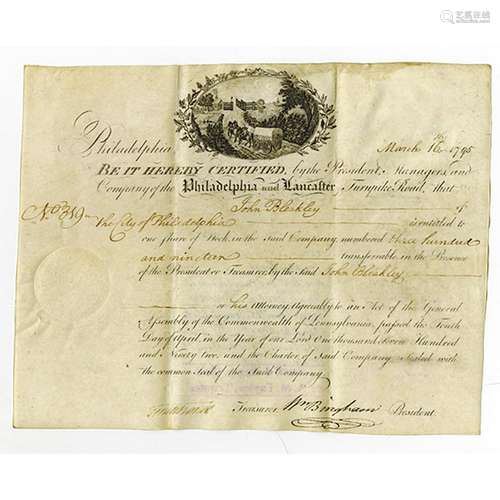 艺术易拍
Philadelphia March 16th 1795
BE IT HEREBY CERTIFIED, by the President, Managers and
Company of the Philadelphia and Lancaster Turnpike Road, that
John Bleakley of
No. 319
the City of Philadelphia is entitled to
one Share of Stock, in the Said Company, numbered three hundred
and nineteen transferable in the Presence
of the President or Treasurer, by the Said John Bleakley
or his Attorney. Agreeably to an Act of the General
Assembly of the Commonwealth of Pennsylvania, passed the Tenth
Day of April, in the Year of our Lord One thousand Seven Hundred
and Ninety two, and the Charter of Said Company, Sealed with
the common Seal of the Said Company.
Treasurer Wm Bingham President.